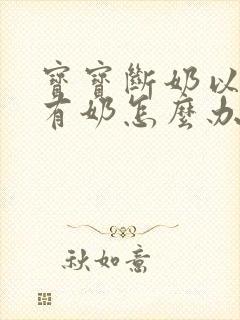 寶寶斷奶以
有奶怎麼办
秋如意